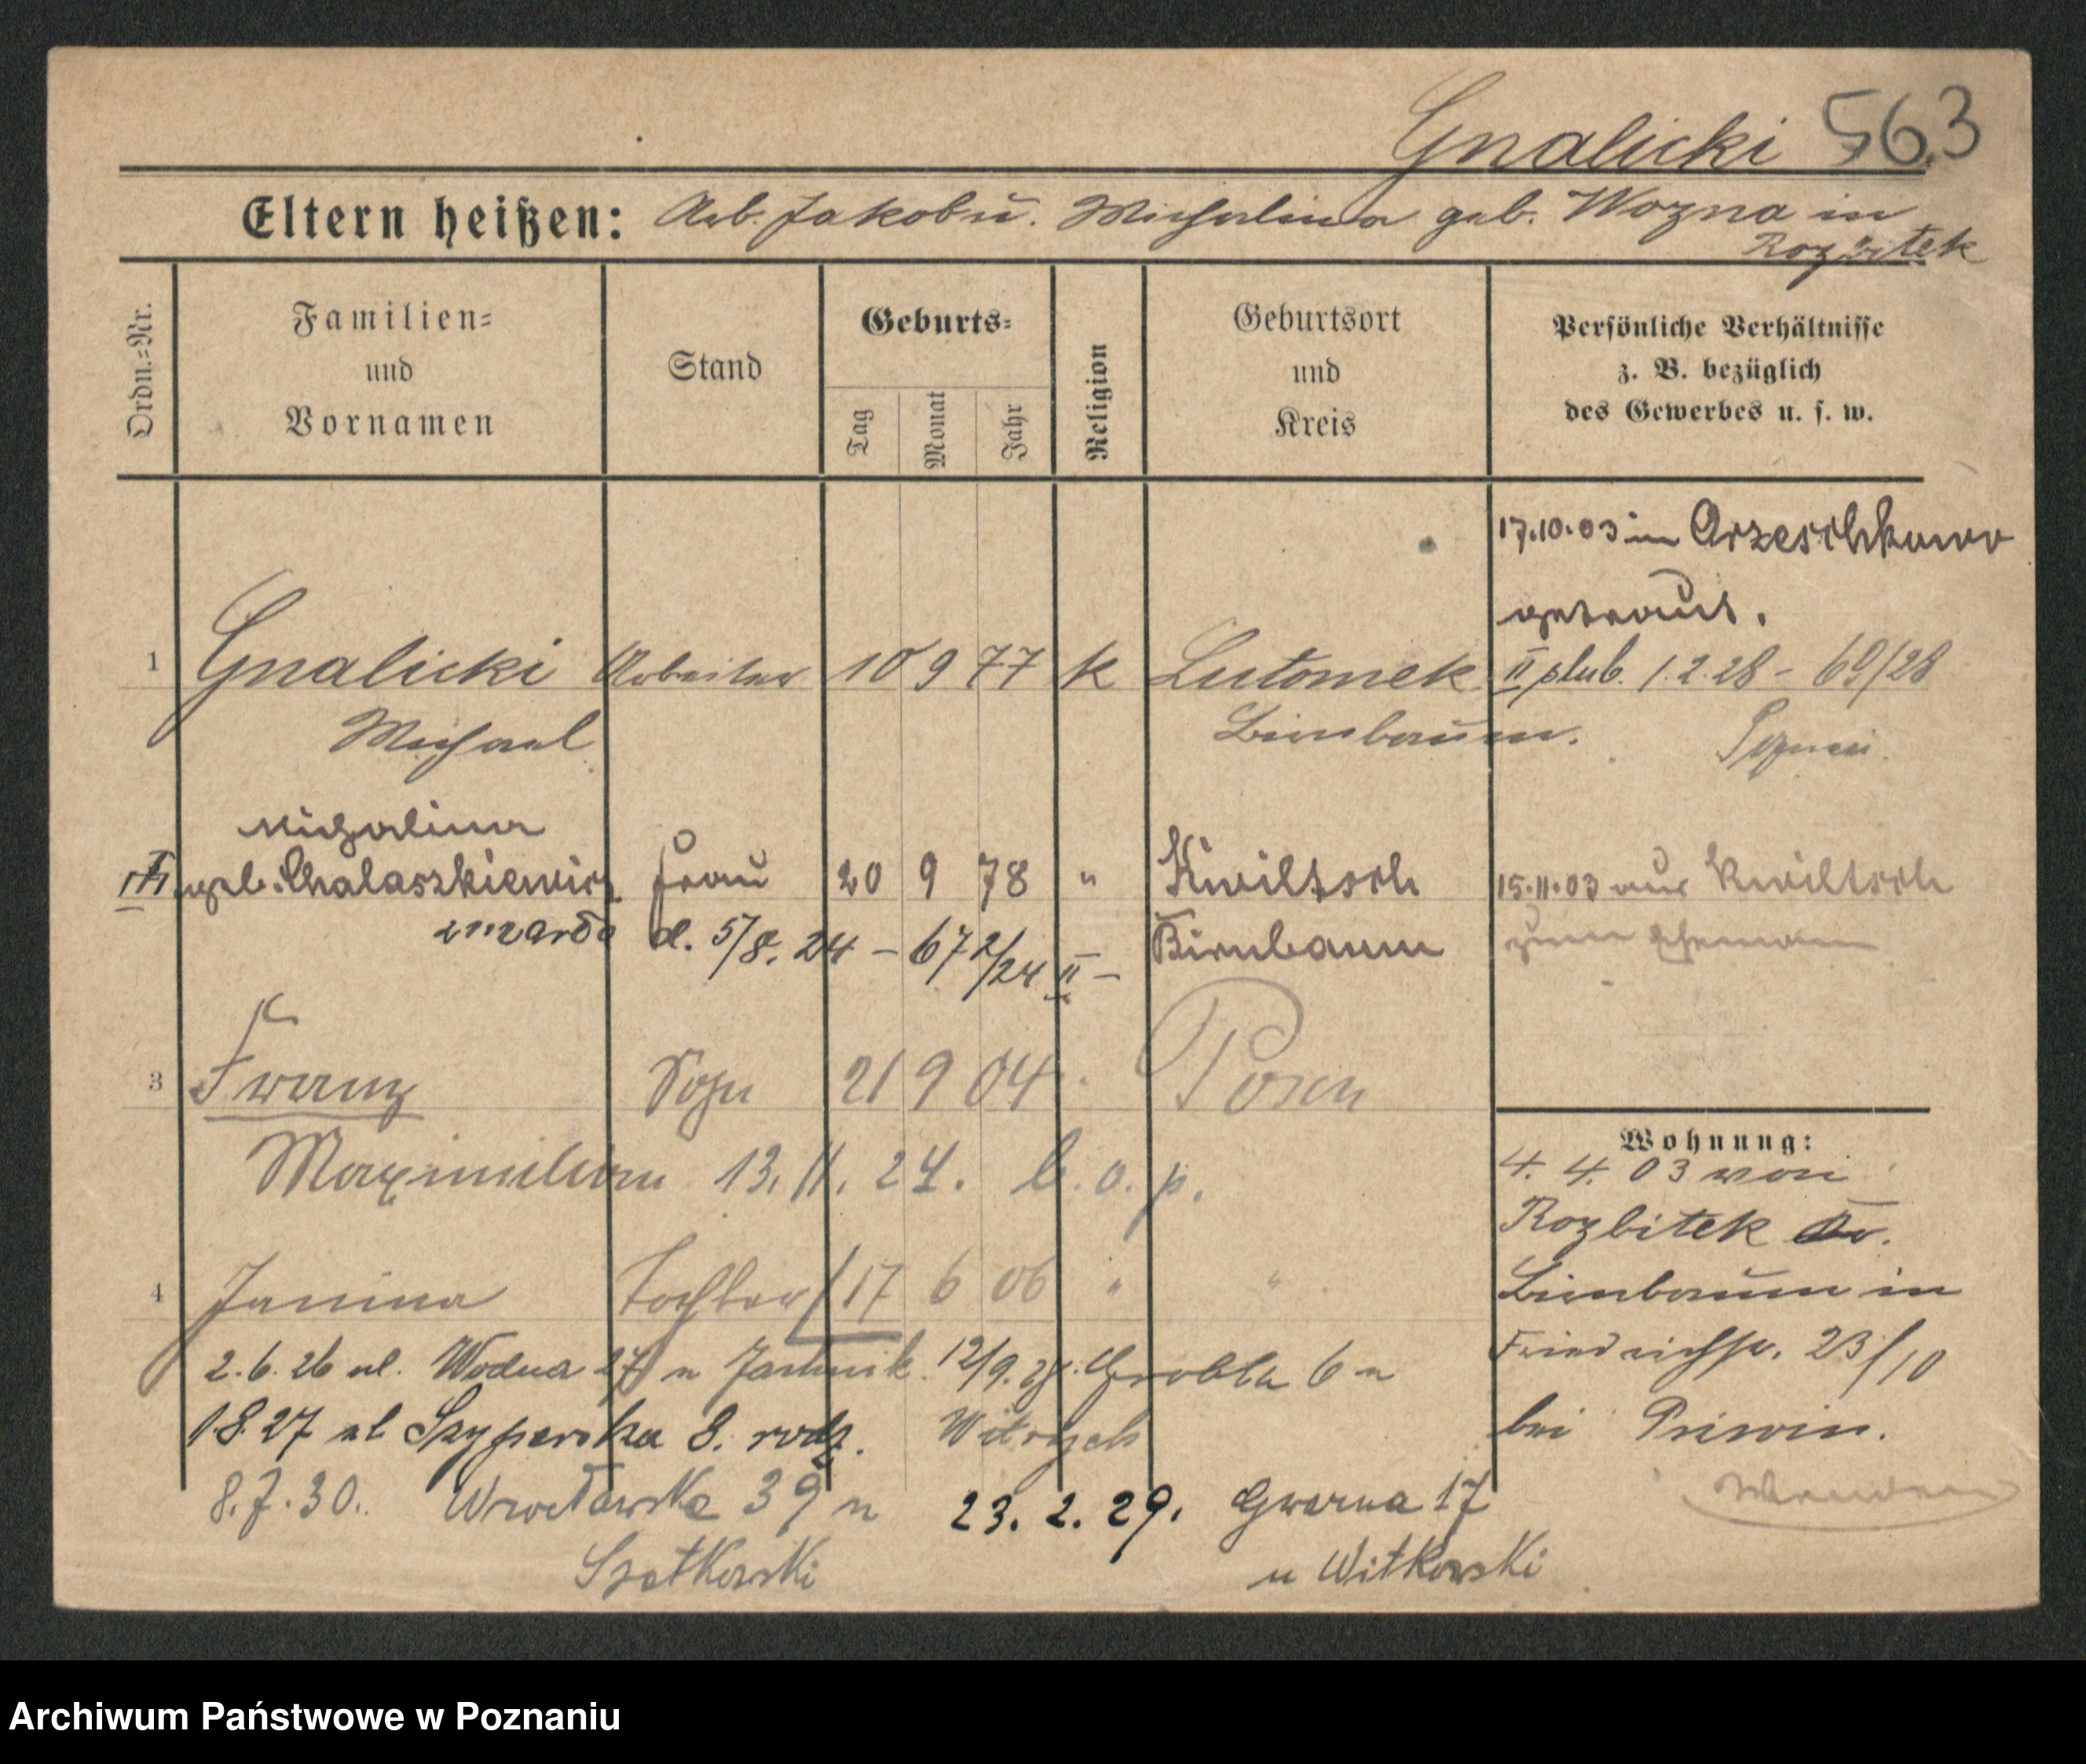 Gnalicki 563
Eltern heißen: Arb. Jakob u. Michalina geb. Wozna in
Rozbitek
Ordn.=Nr.
Familien=
und
Vornamen
Stand
Geburts=
Tag
Monat
Jahr
Religion
Geburtsort
und
Kreis
Persönliche Verhältnisse
z. B. bezüglich
des Gewerbes u. s. w.
17.10.03 in Orzeschkowo
getraut.
1 Gnalicki Arbeiter 10 9 77 k Lutomek II ślub. 1.2.28 – 69/28
Michael Birnbaum.
Michalina
geb. Chalaszkiewicz Frau 20 9 78 " Kwiltsch 15.11.03 aus Kwiltsch
zmarła d. 5/8. 24 – 672/24 II – Birnbaum zum Ehemann
3 Franz Sohn 21 9 04 Posen
Wohnung:
Maximilian 13.11.24. b. o. p.
4. 4. 03 von
Rozbitek Kr.
4 Janina Tochter 17 6 06 " "
Birnbaum in
2.6.26 ul. Wodna 27 u 12/9. Grobla 6 u
Friedrichstr. 23/10
1.8.27 ul Szyperska 8. rodz.
bei
8.7.30. Wrocławska 39 u 23. 2. 29. Gwarna 17
Szatkowski u Witkowski
Archiwum Państwowe w Poznaniu